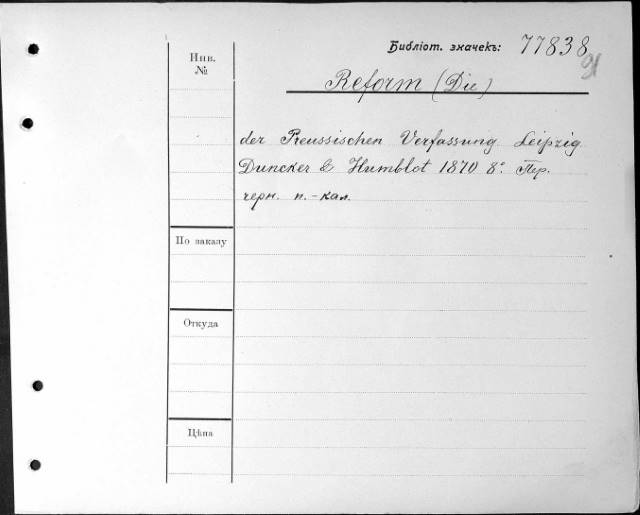 Библіот. значекъ: 77838
Инв.
№
Reform (Die)
der Preussischen Verfassung Leipzig
Duncker & Humblot 1870 8° Пер.
черн. п.-кал.
По заказу
Откуда
Цѣна